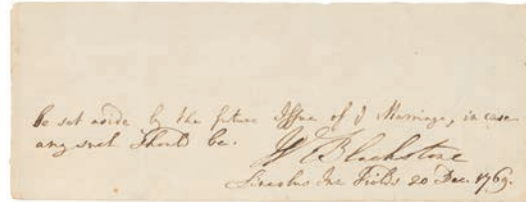 be set aside by the future Issue of ye Marriage, in case
any such Should be.
W Blackstone
Lincolns Inn Fields 20 Dec. 1769.